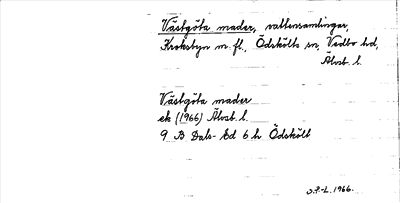 Västgöta mader, vattensamlingar,
Krokstyn m. fl., Ödskölts sn, Vedbo hd,
Älvsb. l.
Västgöta mader
ek (1966) Älvsb. l.
9 B Dals-Ed 6 h Ödskölt
1966.